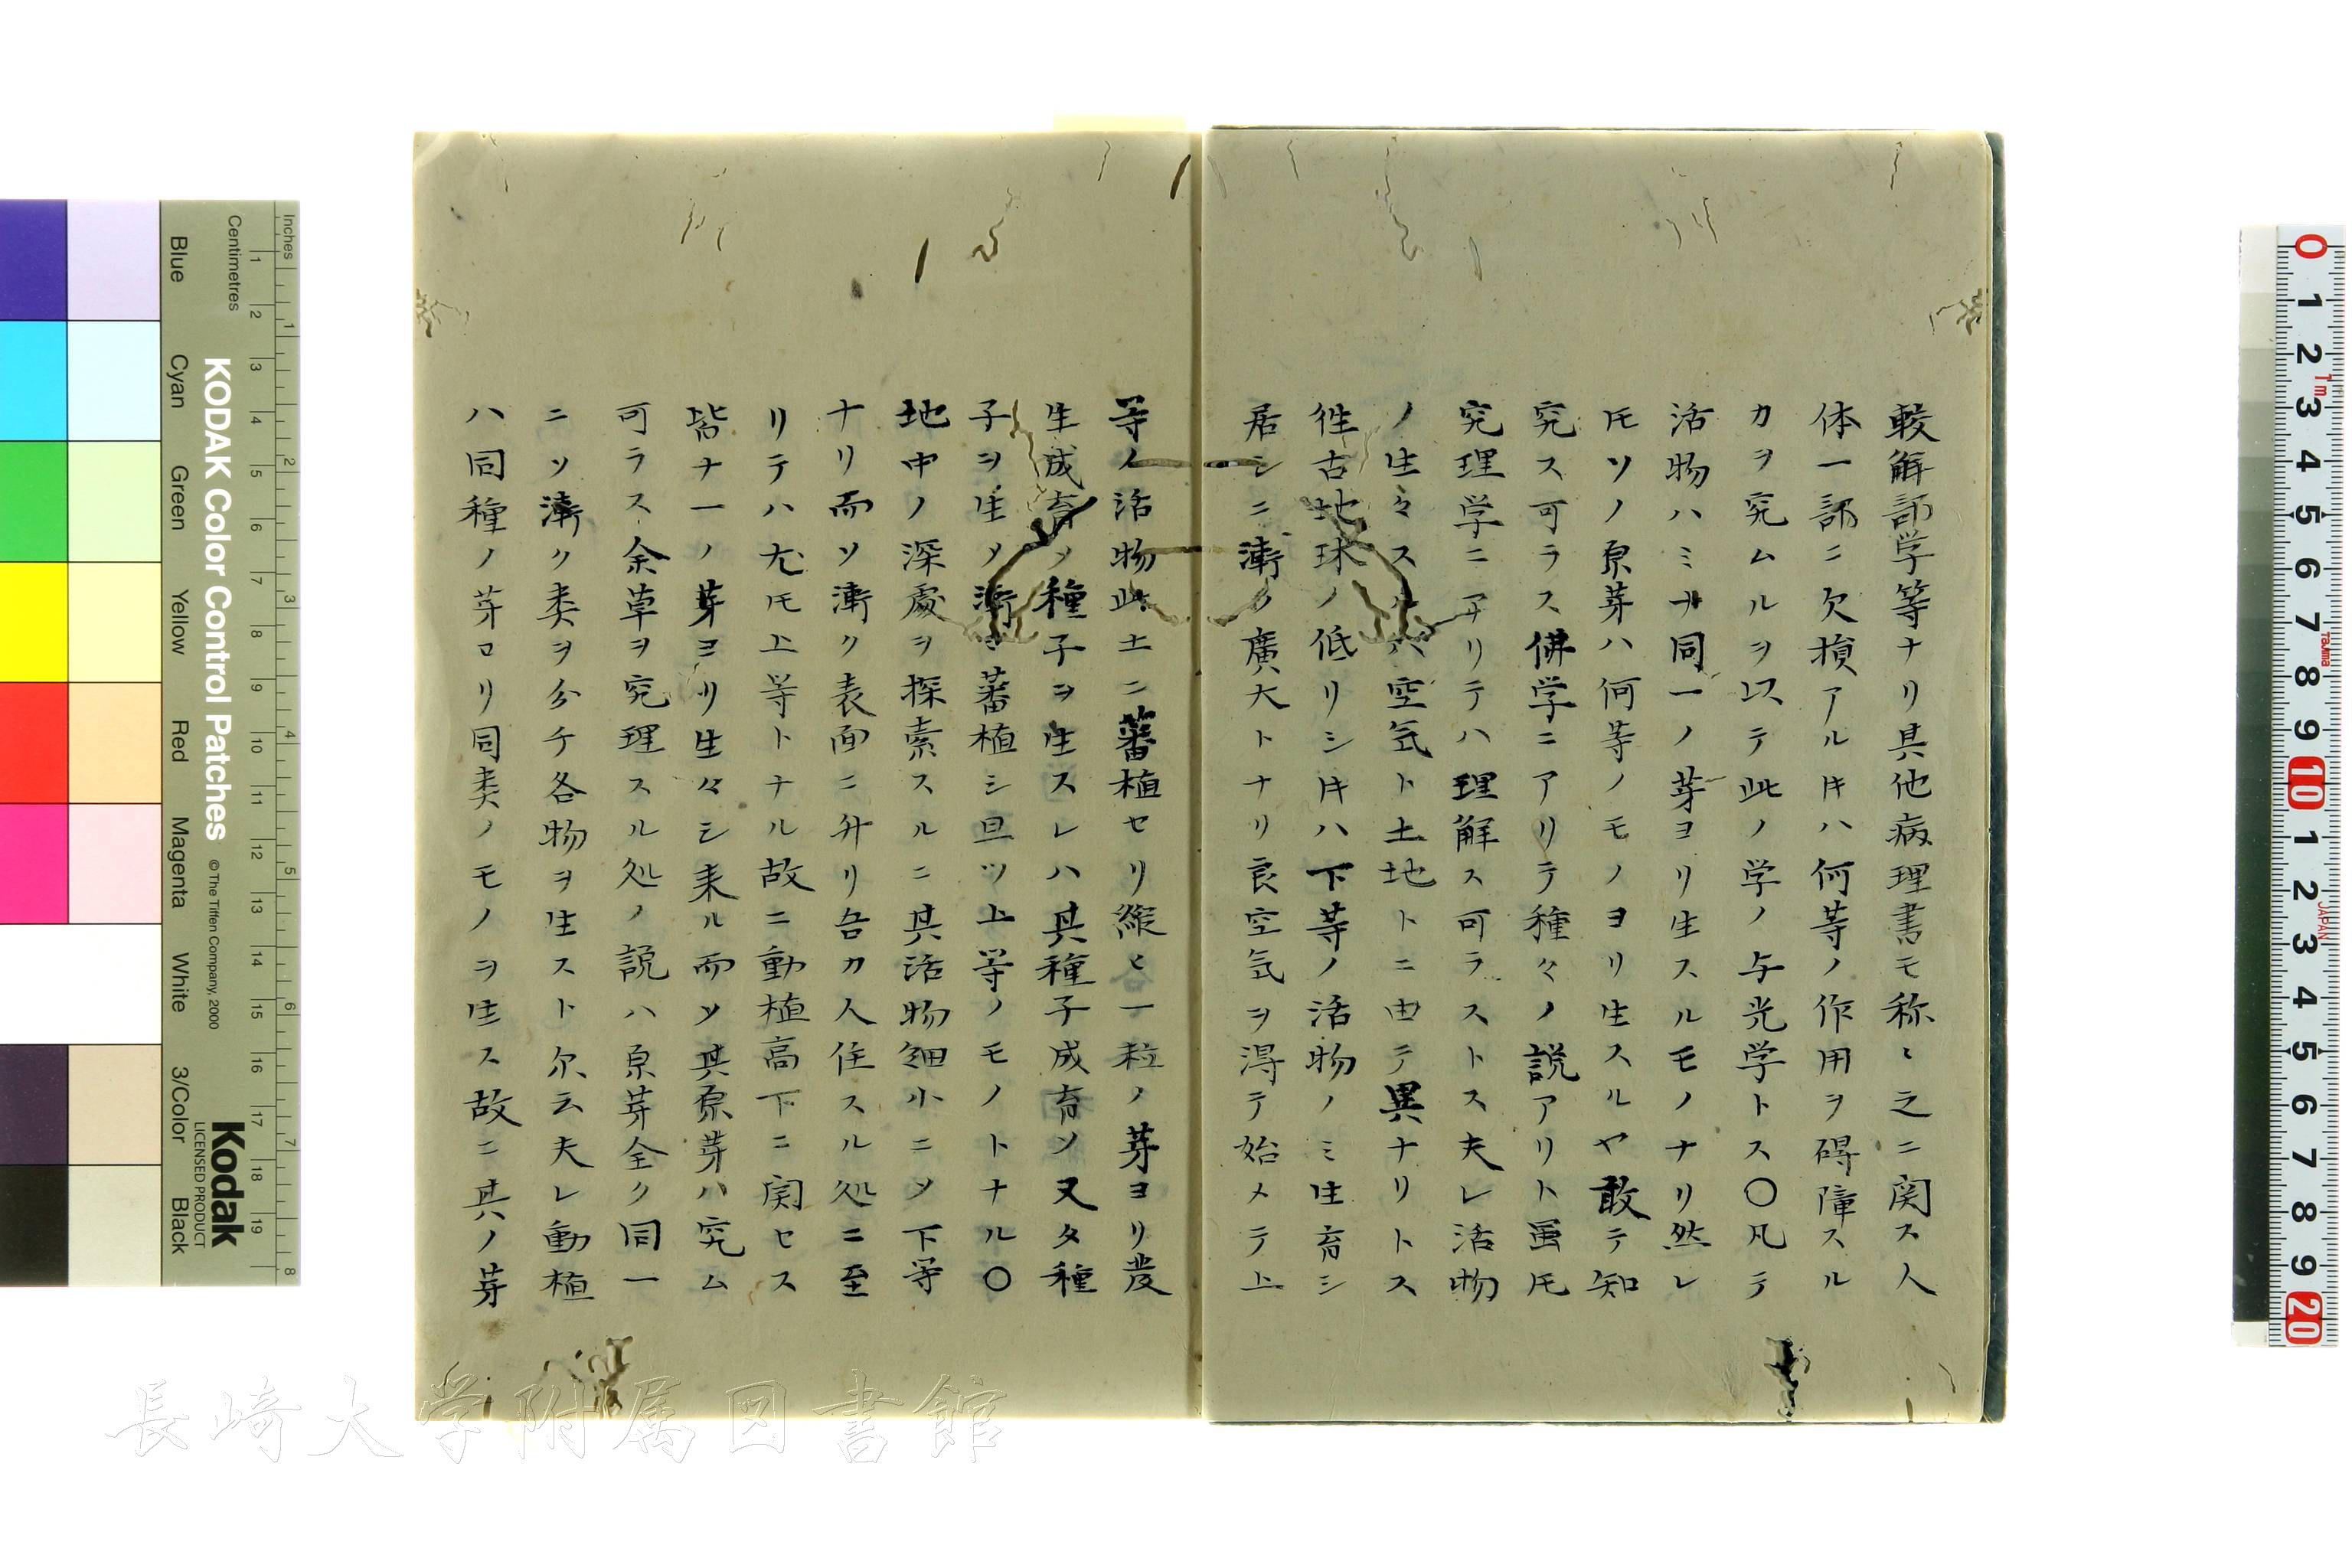 較解部学等ナリ其他病理書モ称々之ニ関ス人
体一部ニ欠損アル𪜈ハ何等ノ作用ヲ碍障スル
カヲ究ムルヲ以テ此ノ学ノ与光学トス〇凡テ
活物ハミナ同一ノ芽ヨリ生スルモノナリ然レ
𪜈ソノ原芽ハ何等ノモノヨリ生スルヤ敢テ知
究ス可ラス佛学ニアリテ種々ノ説アリト虽𪜈
究理学ニ至リテハ理解ス可ラストス夫レ活物
ノ生々スルハ空気ト土地トニ由テ異ナリトス
徃古地球ノ低リシ𪜈ハ下等ノ活物ノミ生育シ
居シニ漸ク廣大トナリ良空気ヲ得テ始メテ上
等ノ活物此土ニ蕃植セリ縦ヒ一粒ノ芽ヨリ発
生成育ノ種子ヲ生スレハ其種子成育ソ又タ種
子ヲ生ソ漸ク蕃植シ且ツ上等ノモノトナル〇
地中ノ深處ヲ探索スルニ其活物細小ニソ下等
ナリ而ソ漸ク表面ニ升リ吾カ人住スル処ニ至
リテハ尤𪜈上等トナル故ニ動植高下ニ関セス
皆ナ一ノ芽ヨリ生々シ来ル而ソ其原芽ハ究ム
可ラス余草ヲ究理スル処ノ説ハ原芽全ク同一
ニソ漸ク类ヲ分チ各物ヲ生スト尓云夫レ動植
ハ同種ノ芽ロリ同类ノモノヲ生ス故ニ其ノ芽
Inches
Centimetres
KODAK Color Control Patches
© The Tiffen Company, 2000
Kodak
LICENSED PRODUCT
Blue
Cyan
Green
Yellow
Red
Magenta
White
3/Color
Black
長崎大学附属図書館